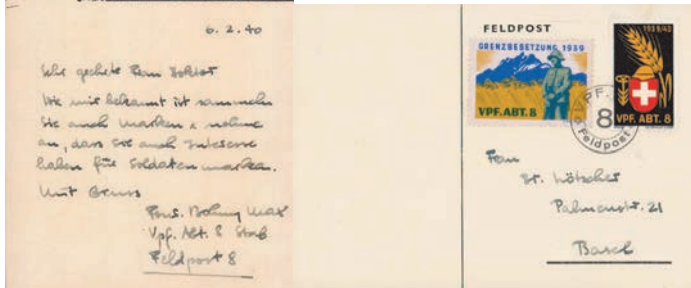 6. 2. 40
Sehr geehrte Frau Doktor
Wie mir bekannt ist sammeln
Sie auch Marken & nehme
an, dass Sie auch Interesse
haben für Soldatenmarken.
Mit Gruss
Max
Vpf. Abt. 8 Stab
Feldpost 8
FELDPOST
GRENZBESETZUNG 1939
VPF. ABT. 8
1939/40
VPF. ABT. 8
8
Feldpost
Frau
Dr. Lötscher
Palmenstr. 21
Basel